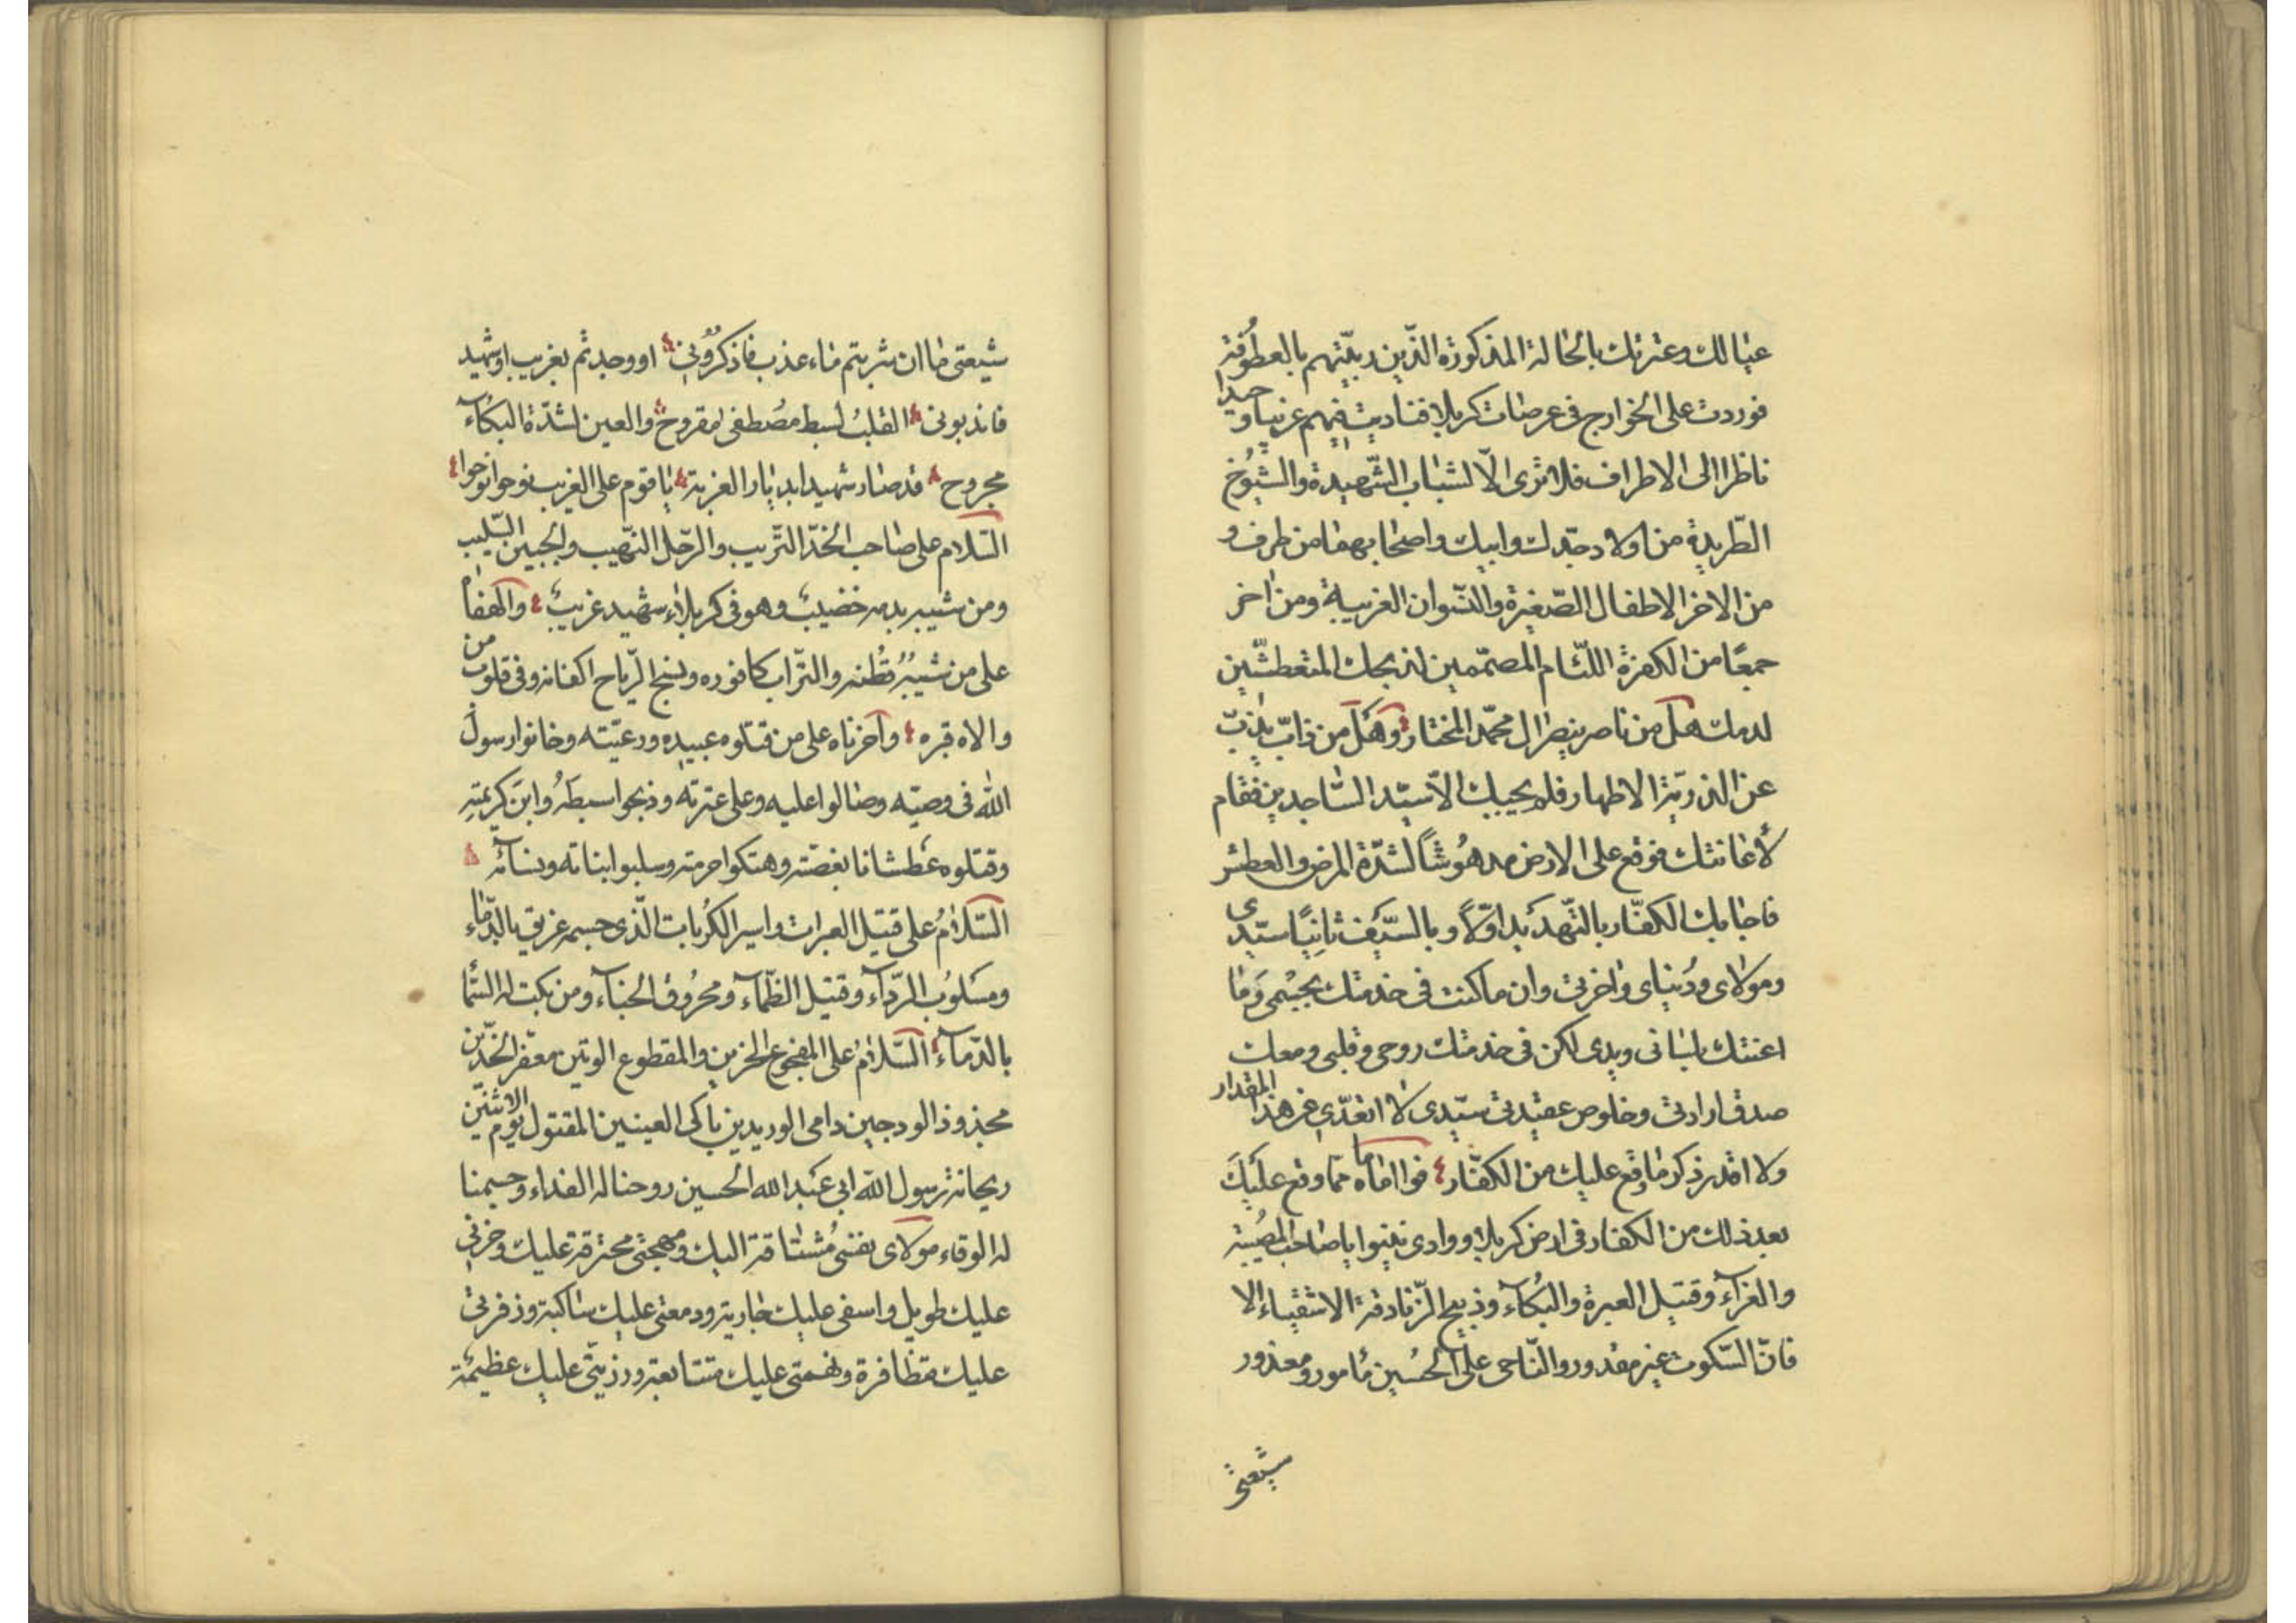 عيالك وعترتك بالحالة المذكورة الذين ربيتهم بالعطوفة
فوردت على الخوارج في عرصات كربلا فناديت فيهم غريبا وحيدا
ناظرا الى الاطراف فلا ترى الّا الشباب الشّهيدة والشيُوخ
الطّريدة من اولاد جدك وابيك واصحابهما من طرف و
من الاخر الاطفال الصّغيرة والنّسوان الغريبة ومن اخر
جمعًا من الكفرة اللّئام المصمّمين لذبحك المتعطشّين
لدمك هل من ناصر ينصر ال محمّد المختار وهل من ذابّ يذبّ
عن الذريّة الاطهار فلم يجيبك الّا سيّد السّاجدين فقام
لأغاثتك فوقع على الارض مدهُوشًا لشدّة المرض والعطش
فاجابك الكفّار بالتّهديد اوّلاً وبالسّيف ثانيًا سيّدى
ومولاى ودُنياى واخرتى وان ما كنت فى خدمتك بجسمى وما
اعنتك بلسانى ويدى لكن فى خدمتك روحى وقلبى ومعك
صدق ارادتى وخلوص عقيدتى سيّدى لا اتعدّى عن هذا المقدار
ولا اقدر ذكر ما وقع عليك من الكفّار فوااماماه ممّا وقع عليكَ
بعد ذلك من الكفار فى ارض كربلا ووادى نينوا يا صاحب المصُيبة
والعزآء وقتيل العبرة والبُكآء وذبيح الزّنادقة الاشقياء الا
فانّ السّكوت غير مقدور والنّاحى على الحُسين مأمور ومعذور
شيعتى
شيعتى ما ان شربتم ماء عذب فاذكرُونى او وجدتم بغريب او شهيد
فاندبونى القلبُ لسبط مصُطفى مقروح والعين لشدّة البكآء
مجروح قد صار شهيدا بديار الغربة يا قوم على الغريب نوحوا نوحوا
السّلام على صاحب الخدّ التّريب والرّحل النّهيب والجبين السّليب
ومن شيبه بدمه خضيب وهو فى كربلاء شهيد غريب والهفاه
على من شيبُه قُطنه والترّاب كافوره ونسج الرّياح اكفانه وفى قلوب من
والاه قبره وآحزناه على من قتلوه عبيده ورعيّته وخانوا رسول
الله فى وصيّته وصالوا عليه وعلى عترته وذبحوا سبطَهُ وابن كريمته
وقتلوه عطشانا بغصّته وهتكوا حرمته وسلبوا بناته ونسآئه
السّلامُ على قتيل العبرات واسير الكُربات الّذى جسمه غريق بالدّماء
ومسَلوبُ الرّدآء وقتيل الظّمآء ومحرُوق الخبآء ومن بكت له السّمأ
بالدّمآء السّلامُ على المفجوع الحزين والمقطوع الوتين معفّر الخدّين
مجذوذ الودجين دامى الوريدين باكى العينين المقتول يوم الاثنين
ريحانة رسول الله ابى عبد الله الحسين روحنا له الفداء وجسمنا
له الوقاء مولاى نفسى مُشتاقة اليك ومهجتى محترقة عليك وحزنى
عليك طويل واسفى عليك جارية ودمعتى عليك ساكبة وزفرتى
عليك متظافرة وغمتى عليك متتابعة ورزيتى عليك عظيمة